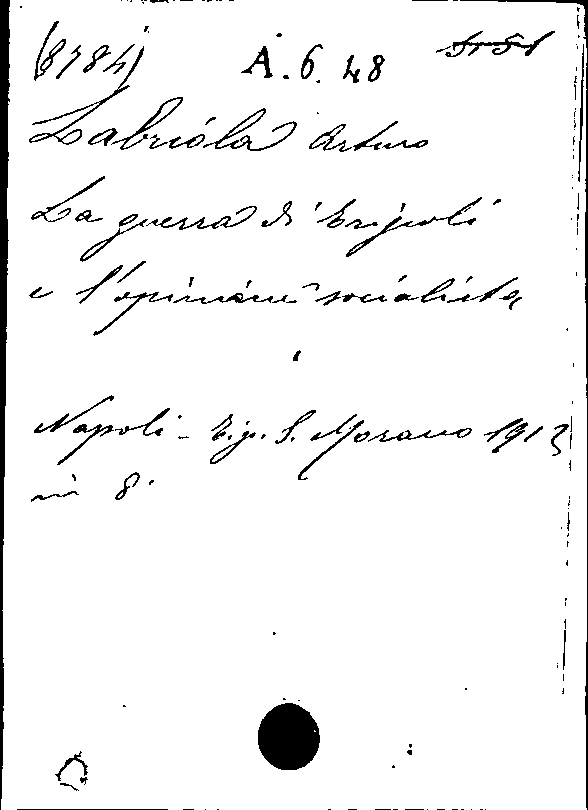 (8784) A. 6. 48
Labriola Arturo
La guerra di Tripoli
e l'opinione socialista
Napoli - Tip. S. Morano 1912
in 8°